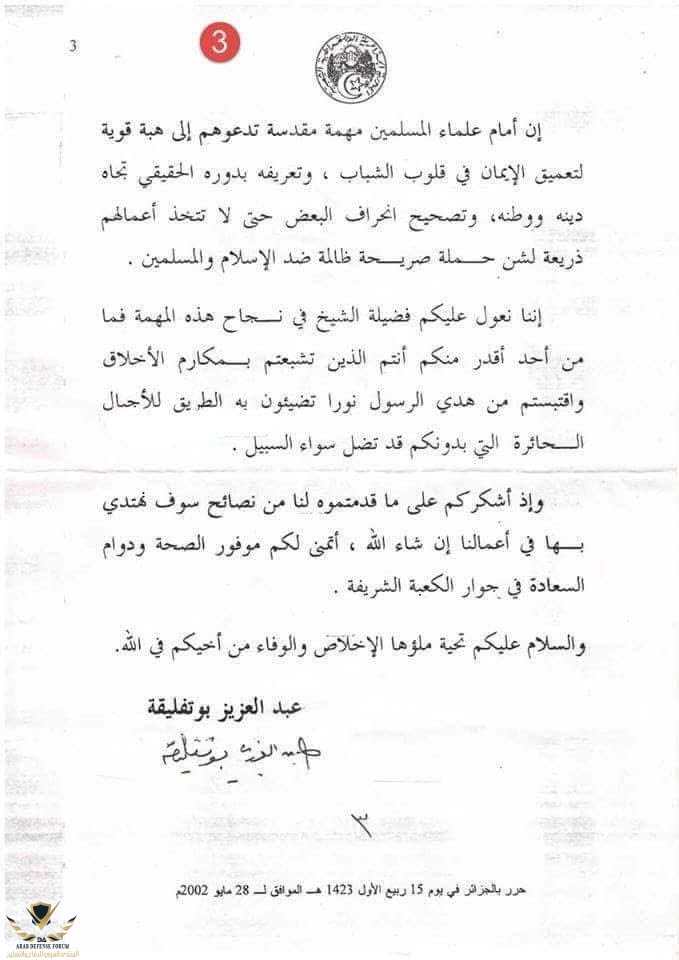 3
3
إن أمام علماء المسلمين مهمة مقدسة تدعوهم إلى هبة قوية
لتعميق الإيمان في قلوب الشباب ، وتعريفه بدوره الحقيقي تجاه
دينه ووطنه، وتصحيح انحراف البعض حتى لا تتخذ أعمالهم
ذريعة لشن حملة صريحة ظالمة ضد الإسلام والمسلمين .
إننا نعول عليكم فضيلة الشيخ في نجاح هذه المهمة فما
من أحد أقدر منكم أنتم الذين تشبعتم بمكارم الأخلاق
واقتبستم من هدي الرسول نورا تضيئون به الطريق للأجيال
الحائرة التي بدونكم قد تضل سواء السبيل .
وإذ أشكركم على ما قدمتموه لنا من نصائح سوف نهتدي
بها في أعمالنا إن شاء الله ، أتمنى لكم موفور الصحة ودوام
السعادة في جوار الكعبة الشريفة .
والسلام عليكم تحية ملؤها الإخلاص والوفاء من أخيكم في الله.
عبد العزيز بوتفليقة
عبد العزيز بوتفليقة
٣
حرر بالجزائر في يوم 15 ربيع الأول 1423 هـ الموافق لـ 28 مايو 2002م
ARAB DEFENSE FORUM
المنتدى العربي للدفاع والتسليح